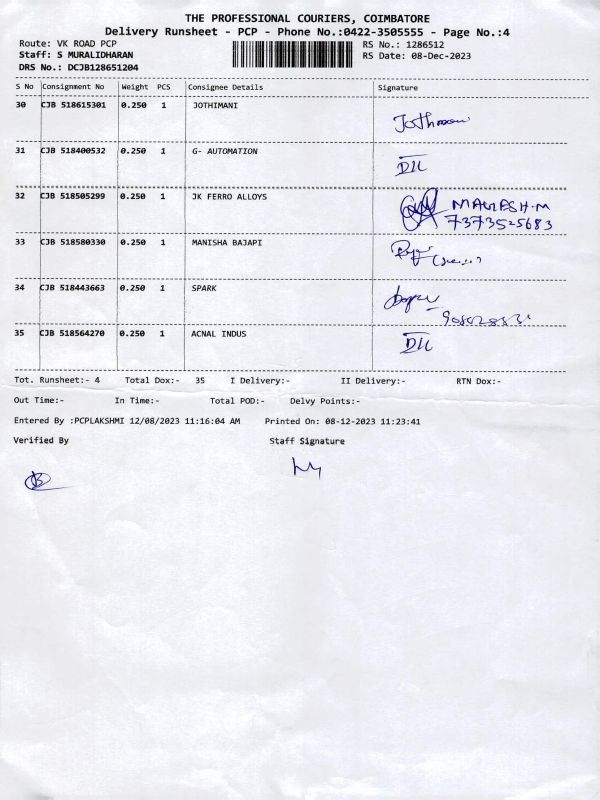 THE PROFESSIONAL COURIERS, COIMBATORE
Delivery Runsheet - PCP - Phone No.:0422-3505555 - Page No.:4
Route: VK ROAD PCP RS No.: 1286512
Staff: S MURALIDHARAN RS Date: 08-Dec-2023
DRS No.: DCJB128651204
S No Consignment No Weight PCS Consignee Details Signature
30 CJB 518615301 0.250 1 JOTHIMANI
31 CJB 518400532 0.250 1 G- AUTOMATION
32 CJB 518505299 0.250 1 JK FERRO ALLOYS
7373525683
33 CJB 518580330 0.250 1 MANISHA BAJAPI
34 CJB 518443663 0.250 1 SPARK
35 CJB 518564270 0.250 1 ACNAL INDUS
Tot. Runsheet:- 4 Total Dox:- 35 I Delivery:- II Delivery:- RTN Dox:-
Out Time:- In Time:- Total POD:- Delvy Points:-
Entered By :PCPLAKSHMI 12/08/2023 11:16:04 AM Printed On: 08-12-2023 11:23:41
Verified By Staff Signature